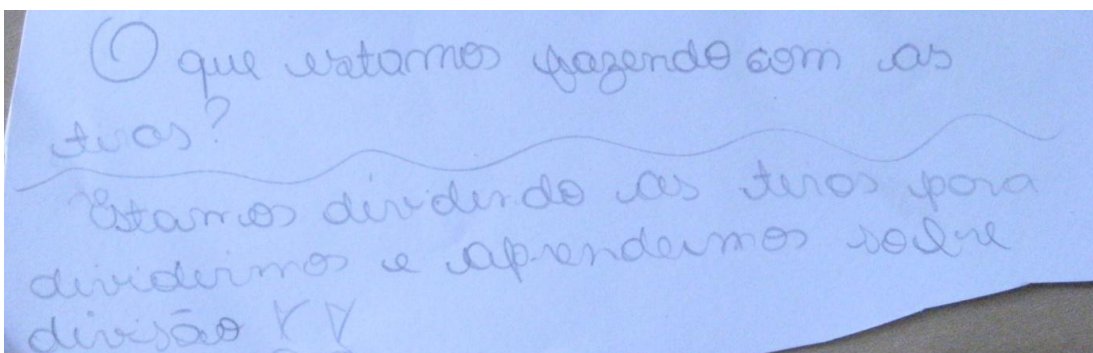 O que estamos fazendo com as
tiras?
Estamos dividindo as tiras para
dividirmos e aprendermos sobre
divisão !!